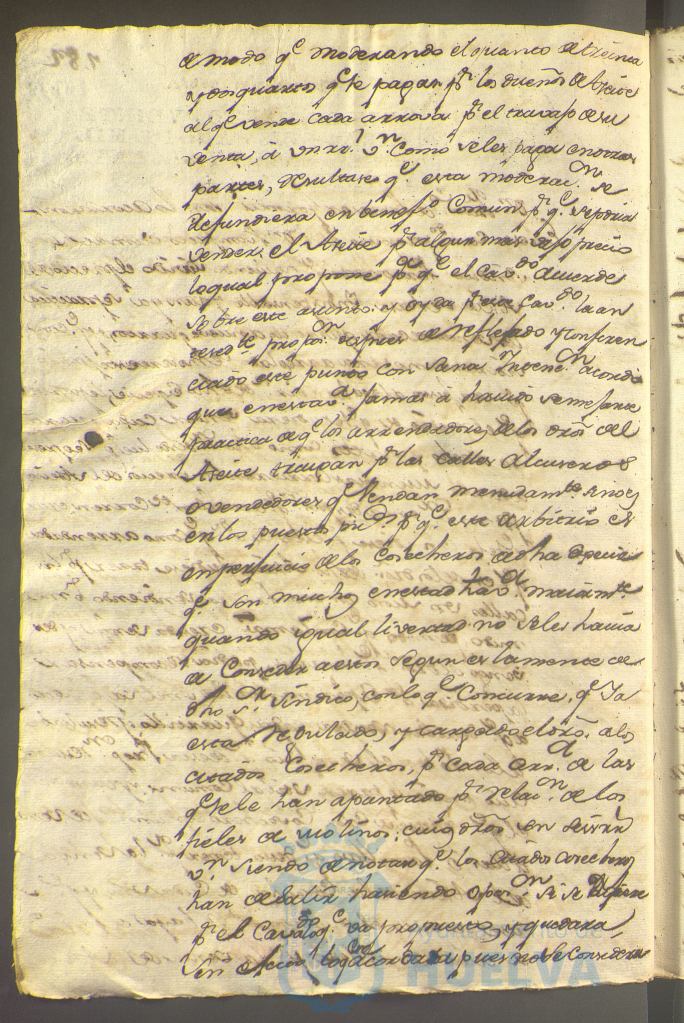 de modo qe. moderando el quanto de treinta
y dos quartos qe. se pagan pr. los dueños de Aceite
al qe. vende cada arrova pr. el travajo de su
venta, à un rl. vn. como se les paga en otras
partes, resultase qe. esta moderacn. se
difundiera en benefo. Comun pr. qe. se podria
vender el Aceite pr. algun mas vajo precio
lo qual propone pa. qe. el Cavdo. acuerde
sobre este asunto: y oyda pr. este Cavdo. la an
tesedte. propon. despues de reflejado y Conferen
ciado este punto con sana yntencn. acordó
que en esta va. jamas à havido semejante
practica de qe. los arrendadores de los dros. del
Aceite traigan pr. las calles Alcuseros
o vendedores qe. vendan menudamte. sino es
en los puestos pr. qe. este arbitrio es
en perjuicio de los Cosecheros de dha especie
qe. son muchos en esta dha va. maiormte.
quando igual livertad no se les havia
de Conseder a estos segun es la mente de
dho sr. Síndico, con lo qe. Concurre, qe. ya
esta regulado, y cargado el dro. a los
citados Cosecheros, pr. cada arra. de las
qe. se le han apuntado pr. relacn. de los
fieles de molinos; cuios dros. son
vn. siendo de notar qe. los citados cosecheros
han de salir haciendo opocn. si se
pr. el Cavalo. qe. va propuesto, y quedara
sin efecto lo qe. acordara pues no se Considera
HUELVA